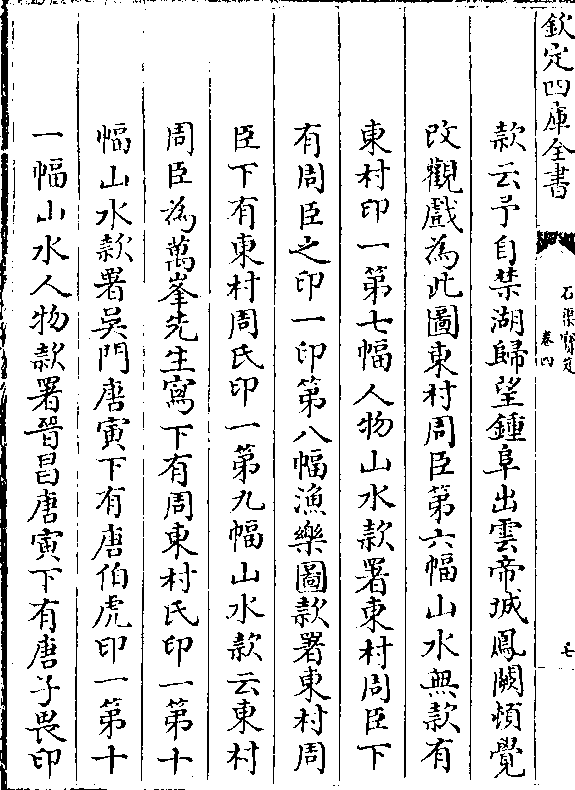 欽定四庫全書
石渠寶笈
卷四
七
款云予自禁湖歸望鍾阜出雲帝城鳳闕頓覺
改觀戲為此圖東村周臣第六幅山水無款有
東村印一第七幅人物山水款署東村周臣下
有周臣之印一印第八幅漁樂圖款署東村周
臣下有東村周氏印一第九幅山水款云東村
周臣為萬峯先生寫下有周東村氏印一第十
幅山水款署吳門唐寅下有唐伯虎印一第十
一幅山水人物款署晉昌唐寅下有唐子畏印